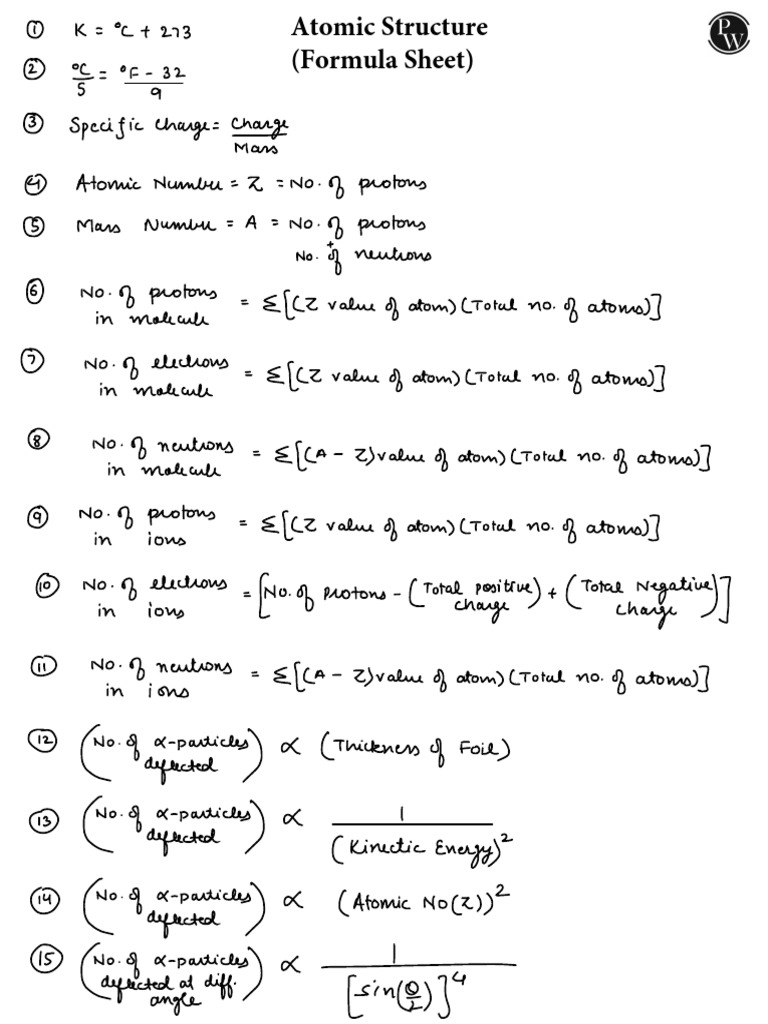 Atomic Structure
(Formula Sheet)
PW
① K = °C + 273
② °C/5 = °F - 32/9
③ Specific Charge = Charge/Mass
④ Atomic Number = Z = No. of protons
⑤ Mass Number = A = No. of protons
+
No. of neutrons
⑥ No. of protons in molecule = Σ[(Z value of atom)(Total no. of atoms)]
⑦ No. of electrons in molecule = Σ[(Z value of atom)(Total no. of atoms)]
⑧ No. of neutrons in molecule = Σ[(A - Z) value of atom)(Total no. of atoms)]
⑨ No. of protons in ions = Σ[(Z value of atom)(Total no. of atoms)]
⑩ No. of electrons in ions = [No. of protons - (Total positive charge) + (Total Negative charge)]
⑪ No. of neutrons in ions = Σ[(A - Z) value of atom)(Total no. of atoms)]
⑫ (No. of α-particles deflected) ∝ (Thickness of Foil)
⑬ (No. of α-particles deflected) ∝ 1/(Kinectic Energy)²
⑭ (No. of α-particles deflected) ∝ (Atomic No(Z))²
⑮ (No. of α-particles deflected at diff. angle) ∝ 1/[sin(θ/2)]⁴